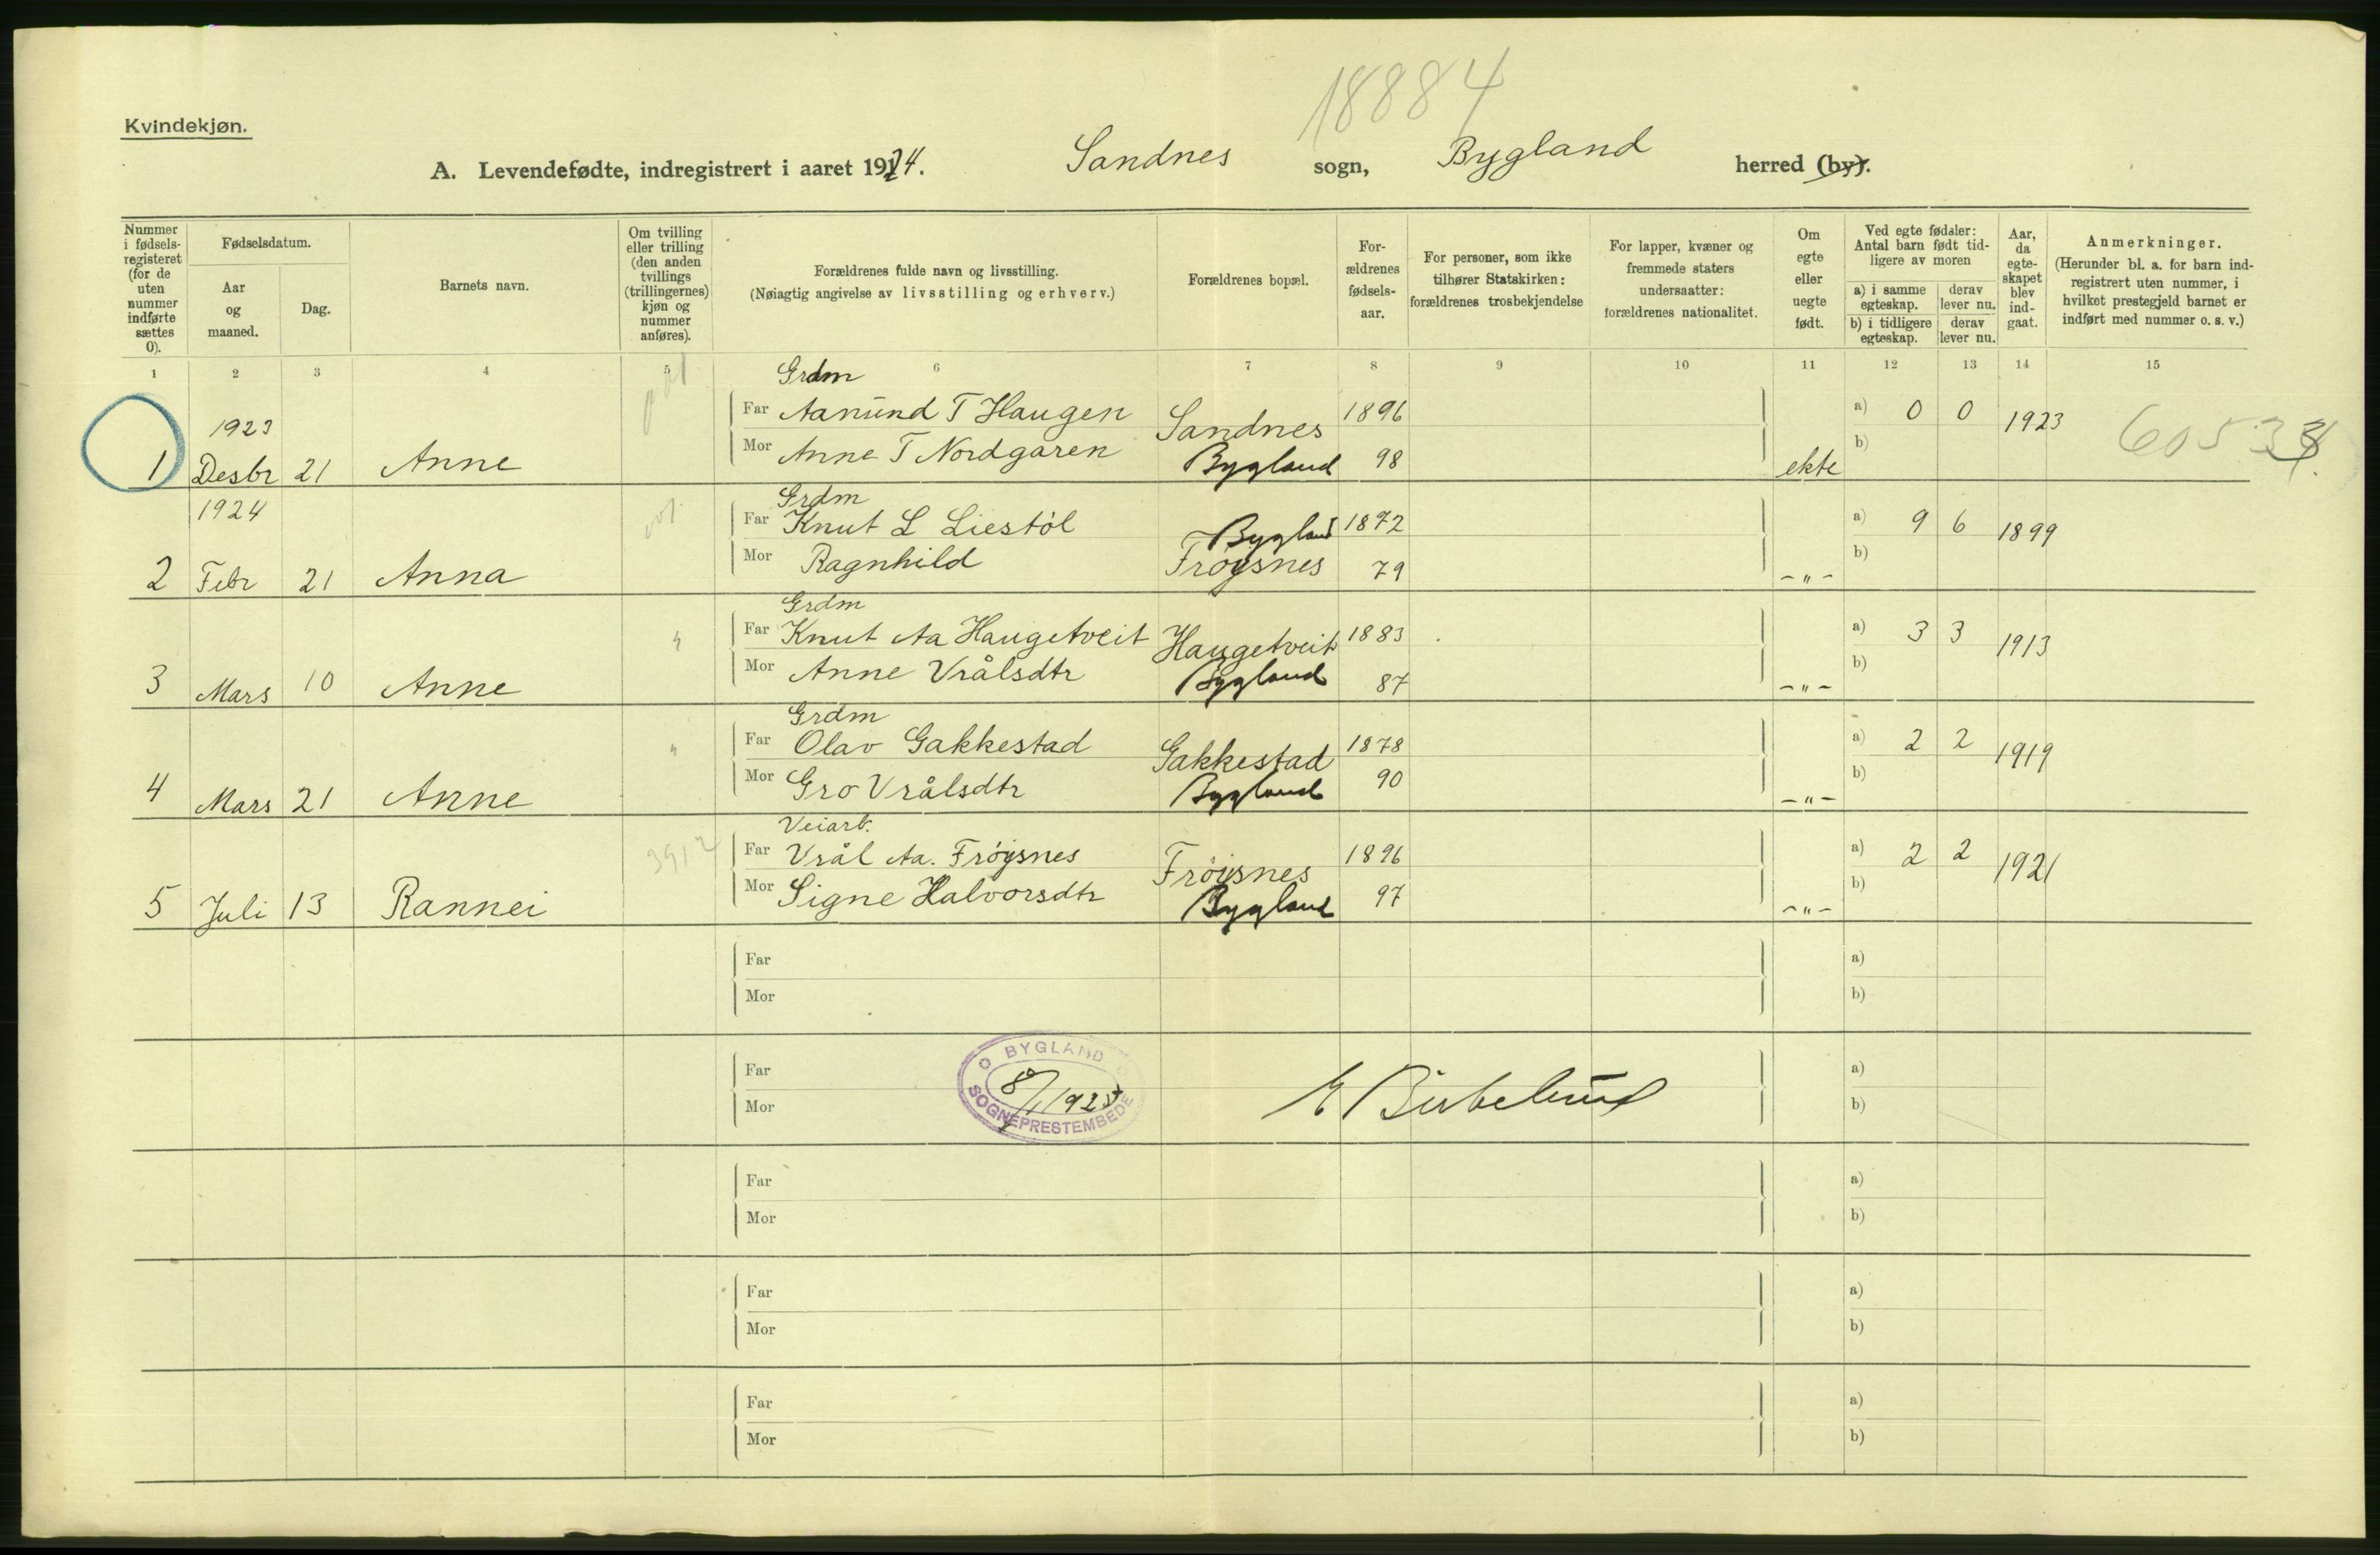 18884
Kvindekjøn.
A. Levendefødte, indregistrert i aaret 1924. Sandnes sogn, Bygland herred (by).
Nummer i fødsels-registeret (for de uten nummer indførte sættes 0).
Fødselsdatum.
Aar og maaned.
Dag.
Barnets navn.
Om tvilling eller trilling (den anden tvillings (trillingernes) kjøn og nummer anføres).
Forældrenes fulde navn og livsstilling.
(Nøiagtig angivelse av livsstilling og erhverv.)
Forældrenes bopæl.
For-ældrenes fødsels-aar.
For personer, som ikke tilhører Statskirken: forældrenes trosbekjendelse
For lapper, kvæner og fremmede staters undersaatter: forældrenes nationalitet.
Om egte eller uegte født.
Ved egte fødsler: Antal barn født tid-ligere av moren
a) i samme egteskap. derav lever nu.
b) i tidligere egteskap. derav lever nu.
Aar, da egte-skapet blev ind-gaat.
Anmerkninger.
(Herunder bl. a. for barn ind-registrert uten nummer, i hvilket prestegjeld barnet er indført med nummer o. s. v.)
1 2 3 4 5 6 7 8 9 10 11 12 13 14 15
Grdm
1923 Far Aanund T Haugen Sandnes 1896 a) 0 0 1923
1 Desbr 21 Anne Mor Anne T Nordgaren Bygland 98 ekte b)
Grdm
1924 Far Knut L Liestöl Bygland 1872 a) 9 6 1899
2 Febr 21 Anna Mor Ragnhild Fröysnes 79 -"- b)
Grdm
Far Knut Aa Haugetveit Haugetveit 1883 a) 3 3 1913
3 Mars 10 Anne Mor Anne Vrålsdtr Bygland 87 -"- b)
Grdm
Far Olav Gakkestad Gakkestad 1878 a) 2 2 1919
4 Mars 21 Anne Mor Gro Vrålsdtr Bygland 90 -"- b)
Veiarb.
3912 Far Vrål Aa. Fröysnes Fröysnes 1896 a) 2 2 1921
5 Juli 13 Rannei Mor Signe Halvorsdtr Bygland 97 -"- b)
Far a)
Mor b)
Far a)
Mor b)
BYGLAND
8/1 1925
SOGNEPRESTEMBEDE
Far a)
Mor b)
Far a)
Mor b)
Far a)
Mor b)